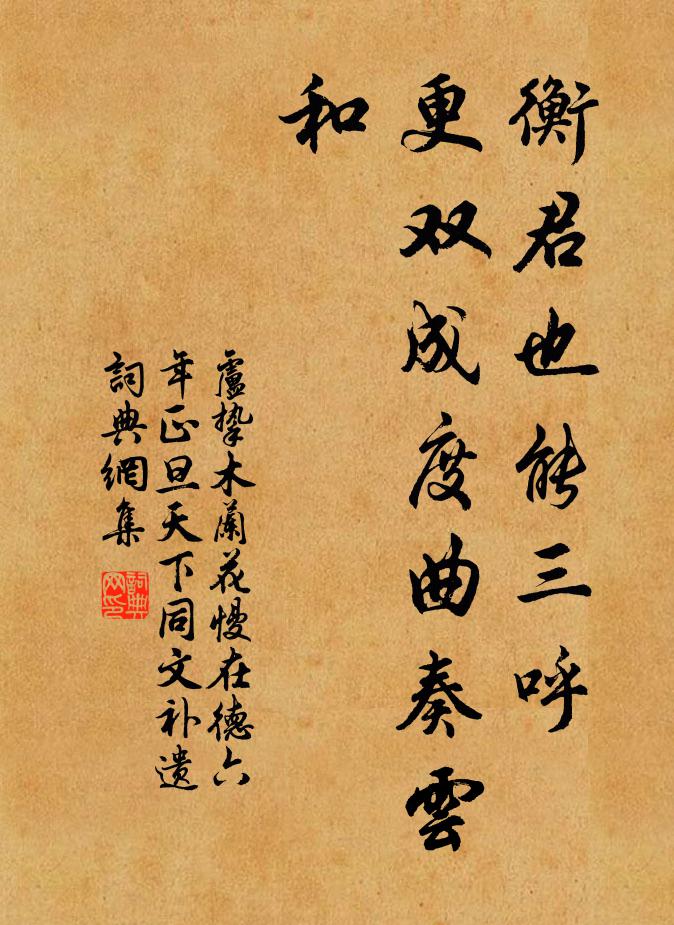 衡君也能三呼
更双成度曲奏雲
和
盧摯木蘭花慢在德六
年正旦天下同文补遗
詞典網集
詞典
网印